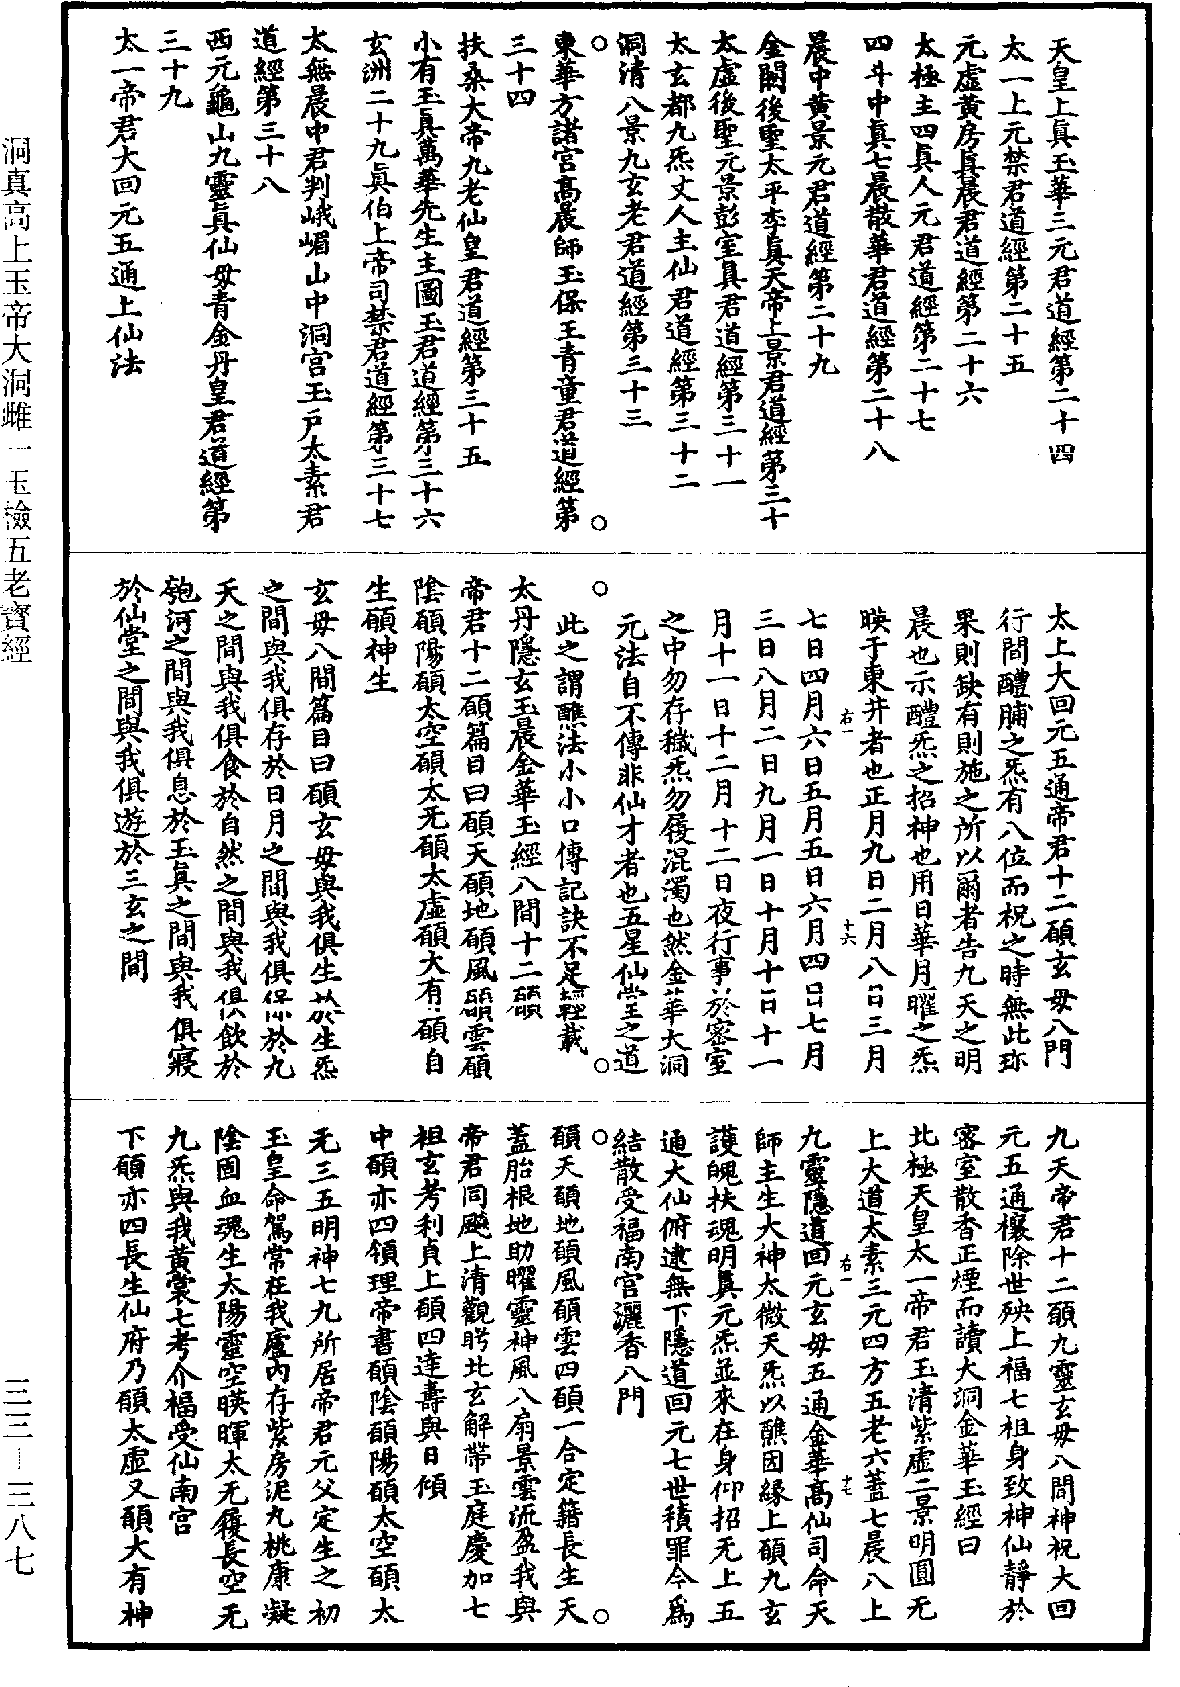 天皇上眞玉華三元君道經第二十四
太一上元禁君道經第二十五
元虛黃房眞晨君道經第二十六
太極主四眞人元君道經第二十七
四斗中眞七晨散華君道經第二十八
晨中黃景元君道經第二十九
金闕後聖太平李眞天帝上景君道經第三十
太虛後聖元景彭室眞君道經第三十一
太玄都九炁丈人主仙君道經第三十二
洞清八景九玄老君道經第三十三
東華方諸宮高晨師玉保王青童君道經第
三十四
扶桑大帝九老仙皇君道經第三十五
小有玉眞萬華先生主圖玉君道經第三十六
玄洲二十九眞伯上帝司禁君道經第三十七
太無晨中君判峨嵋山中洞宮玉戶太素君
道經第三十八
西元龜山九靈眞仙毋青金丹皇君道經第
三十九
太一帝君大回元五通上仙法
太上大回元五通帝君十二願玄毋八門
行間醴脯之炁有八位而祝之時無此珎
果則缺有則施之所以爾者告九天之明
晨也示醴炁之招神也用日華月曜之炁
暎于東井者也正月九日二月八日三月
右一
十六
七日四月六日五月五日六月四日七月
三日八月二日九月一日十月十日十一
月十一日十二月十二日夜行事於密室
之中勿存穢炁勿履混濁也然金華大洞
元法自不傳非仙才者也五星仙堂之道
此之謂醮法小小口傳記訣不足輕載
太丹隱玄玉晨金華玉經八間十二願
帝君十二願篇目曰願天願地願風願雲願
陰願陽願太空願太无願太虛願大有願自
生願神生
玄毋八間篇目曰願玄毋與我俱生於生炁
之間與我俱存於日月之間與我俱保於九
天之間與我俱食於自然之間與我俱飲於
匏河之間與我俱息於玉眞之間與我俱寢
於仙堂之間與我俱遊於三玄之間
九天帝君十二願九靈玄毋八間神祝大回
元五通禳除世殃上福七祖身致神仙靜於
密室散香正煙而讀大洞金華玉經曰
北極天皇太一帝君玉清紫虛二景明圓无
上大道太素三元四方五老六蓋七晨八上
右一
十七
九靈隱道回元玄毋五通金華高仙司命天
師主生大神太微天炁以醮因緣上願九玄
護魄扶魂明眞元炁並來在身仰招无上五
通大仙俯逮無下隱道回元七世積罪今爲
結散受福南宮灑香八門
願天願地願風願雲四願一合定籍長生天
蓋胎根地助曜靈神風八扇景雲流盈我與
帝君同飈上清觀眄北玄解帶玉庭慶加七
祖玄考利貞上願四達壽與日傾
中願亦四領理帝書願陰願陽願太空願太
无三五明神七九所居帝君元父定生之初
玉皇命駕常在我廬內存紫房泥丸桃康凝
陰固血魂生太陽靈空暎暉太无履長空无
九炁與我黃裳七考介福受仙南宮
下願亦四長生仙府乃願太虛又願大有神
洞真高上玉帝大洞雌一玉檢五老寶經
三三—三八七